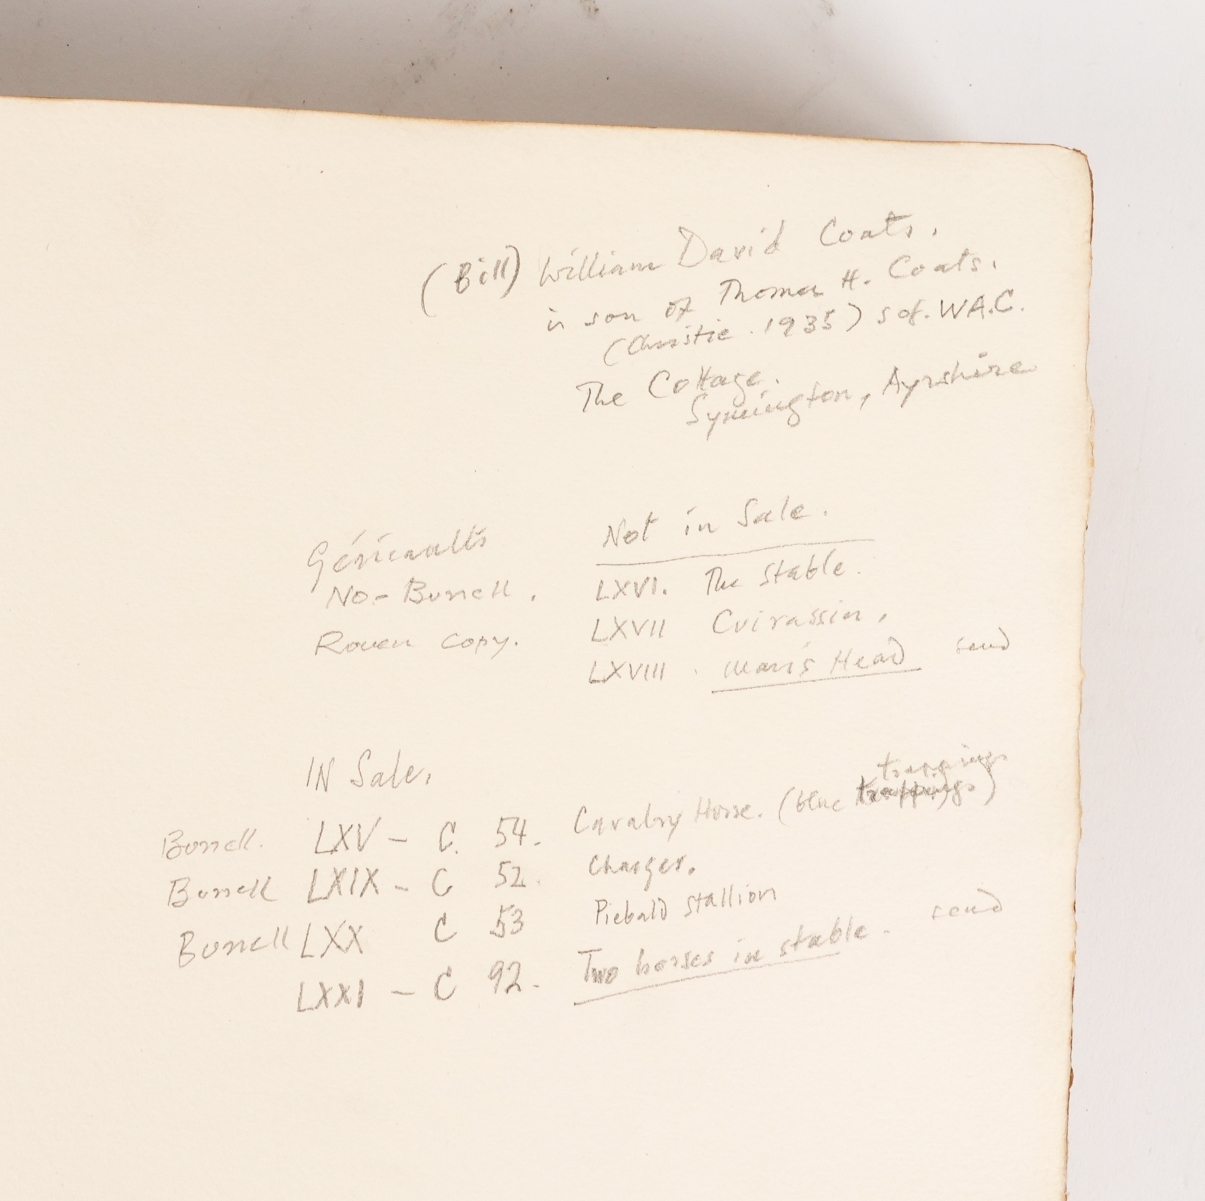 (Bill) William David Coats.
is son of Thomas H. Coats.
(Christie. 1935) s of. W.A.C.
The Cottage.
Symington, Ayrshire
Géricaults
No - Burrell.
Rouen copy.
Not in Sale.
LXVI. The Stable.
LXVII Cuirassier,
LXVIII. Man's Head send
IN Sale.
trappings
Burrell. LXV - C. 54. Cavalry Horse. (blue trappings)
Burrell LXIX - C 52. Charger.
Burrell LXX C 53 Piebald stallion
LXXI - C 92. Two horses in stable. send